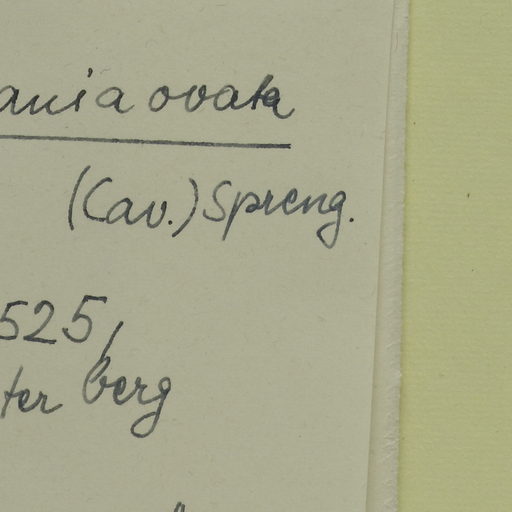 ania ovata
(Cav.) Spreng.
525,
ter berg